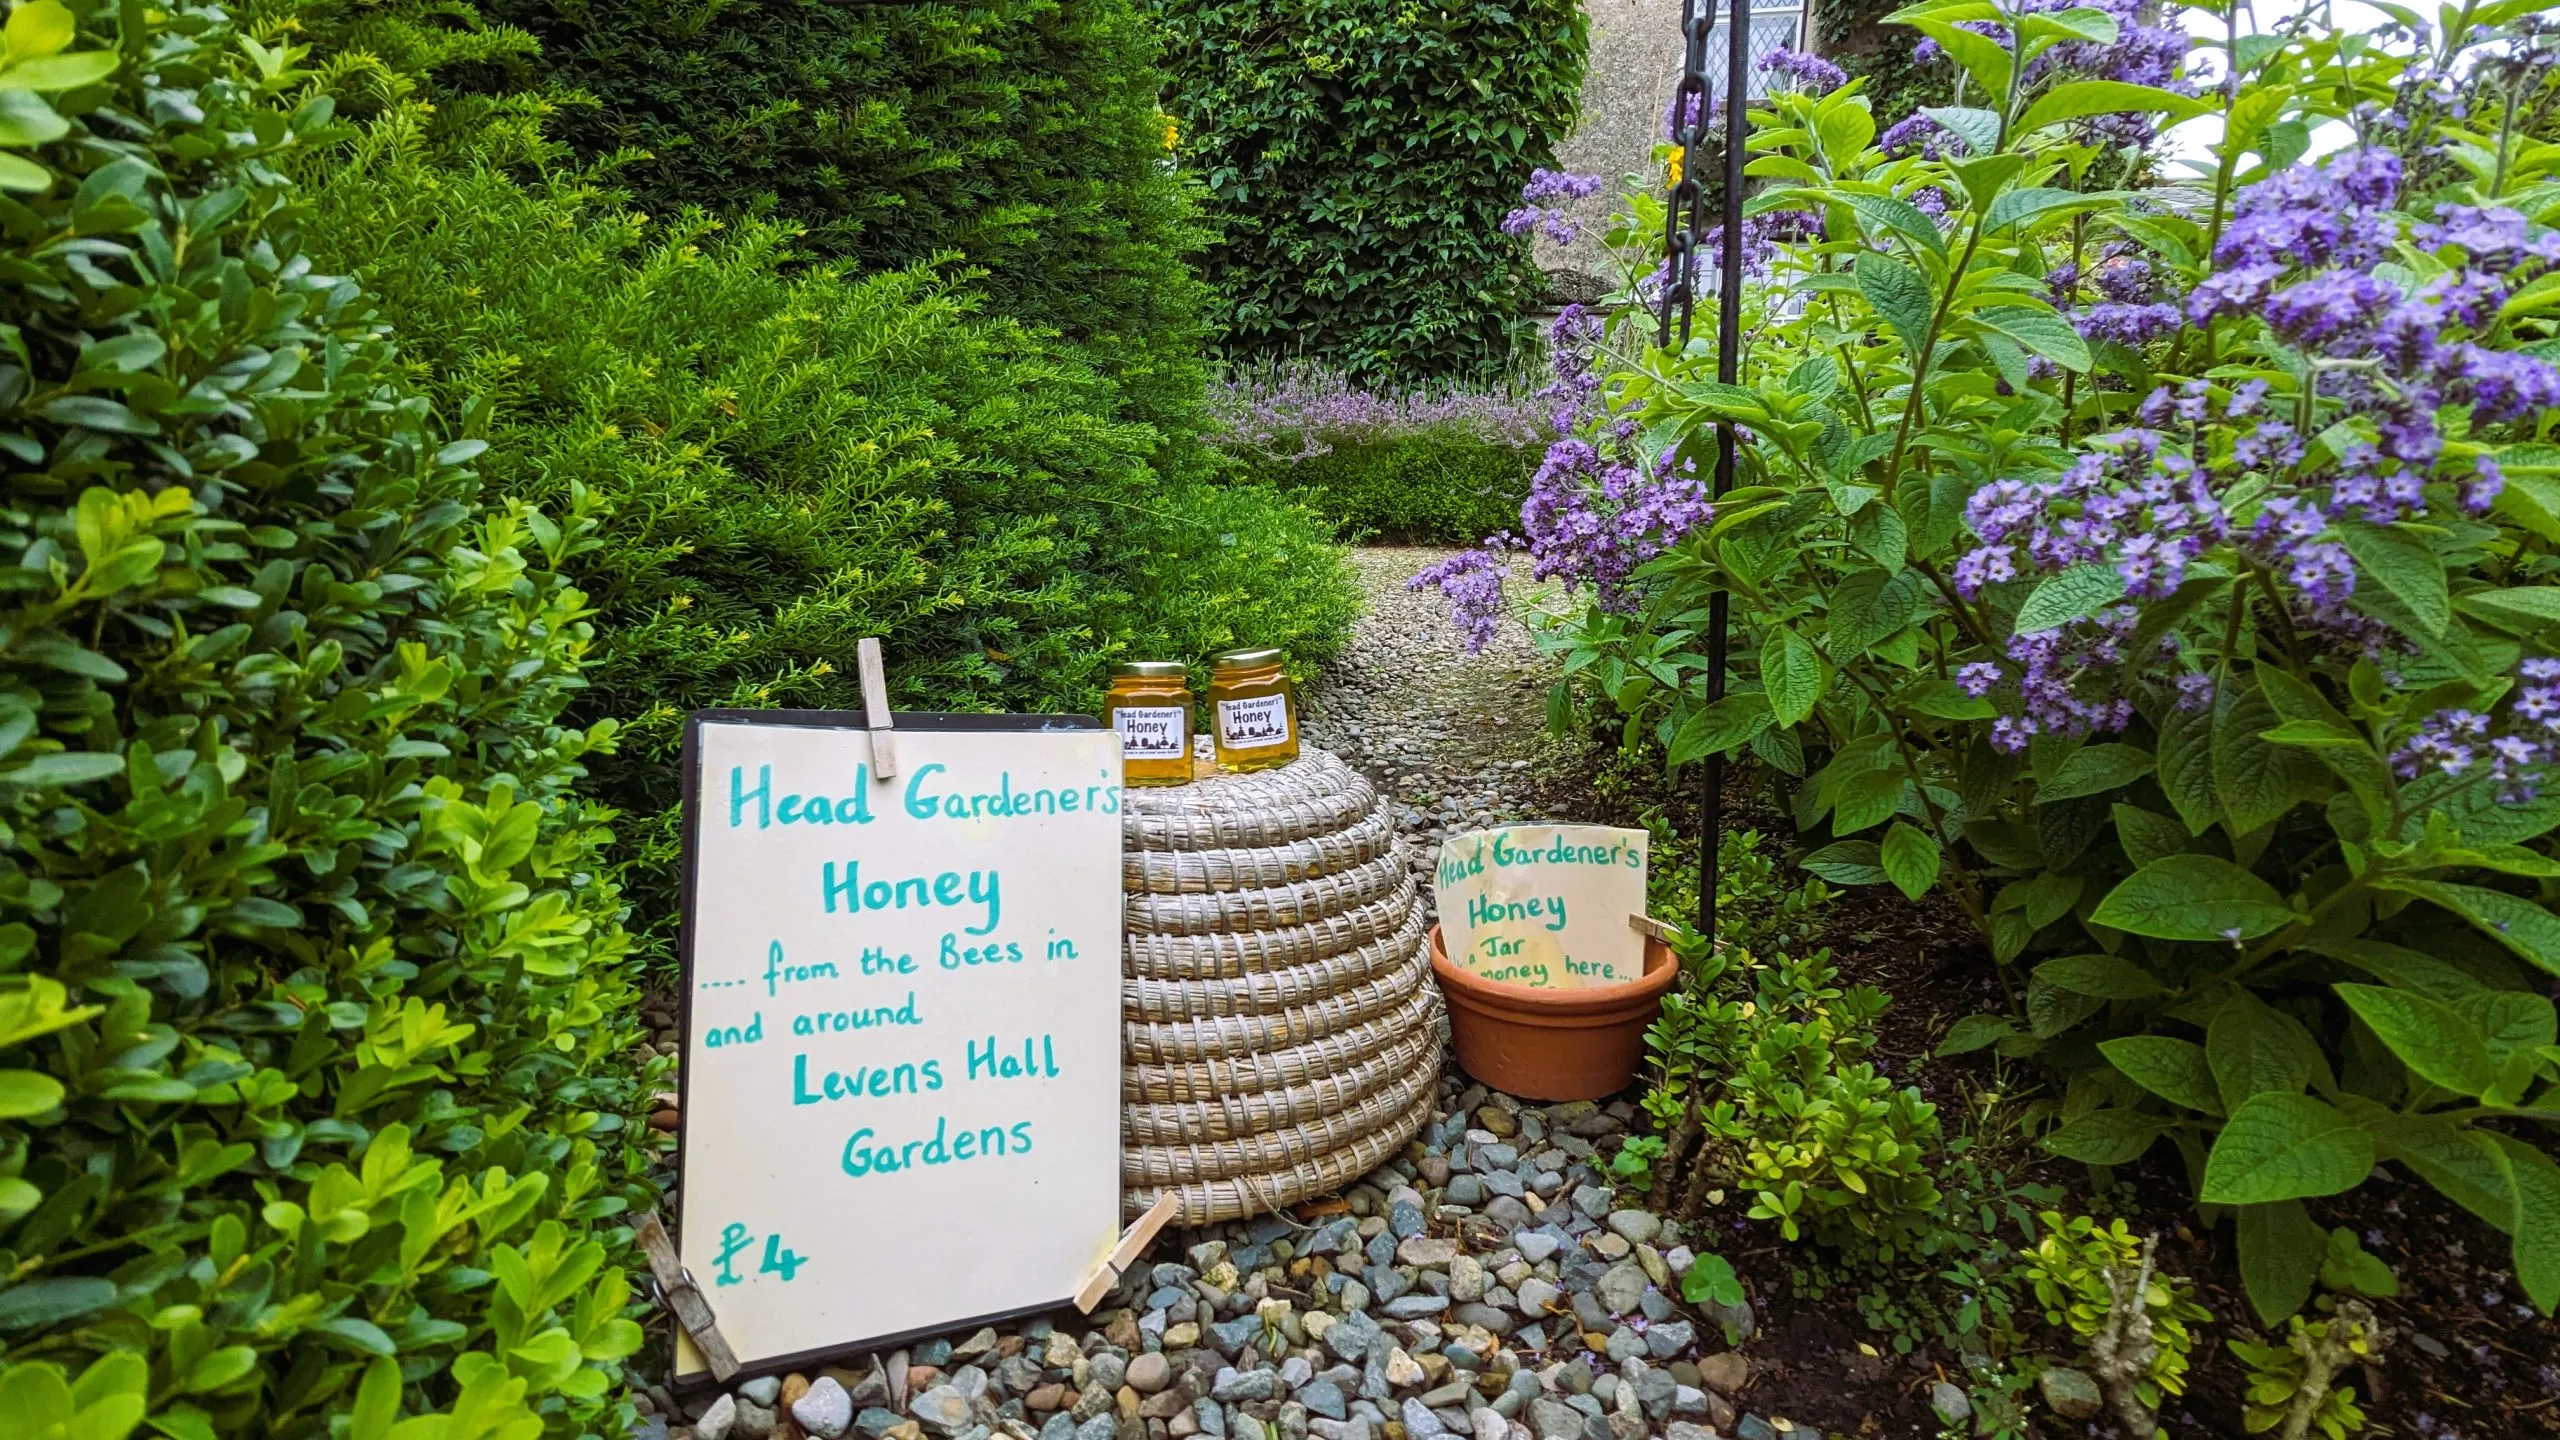 Head Gardener's
Honey
.... from the Bees in
and around
Levens Hall
Gardens
£4
Head Gardener's
Honey
Head Gardener's
Honey
Head Gardener's
Honey
a Jar
money here...